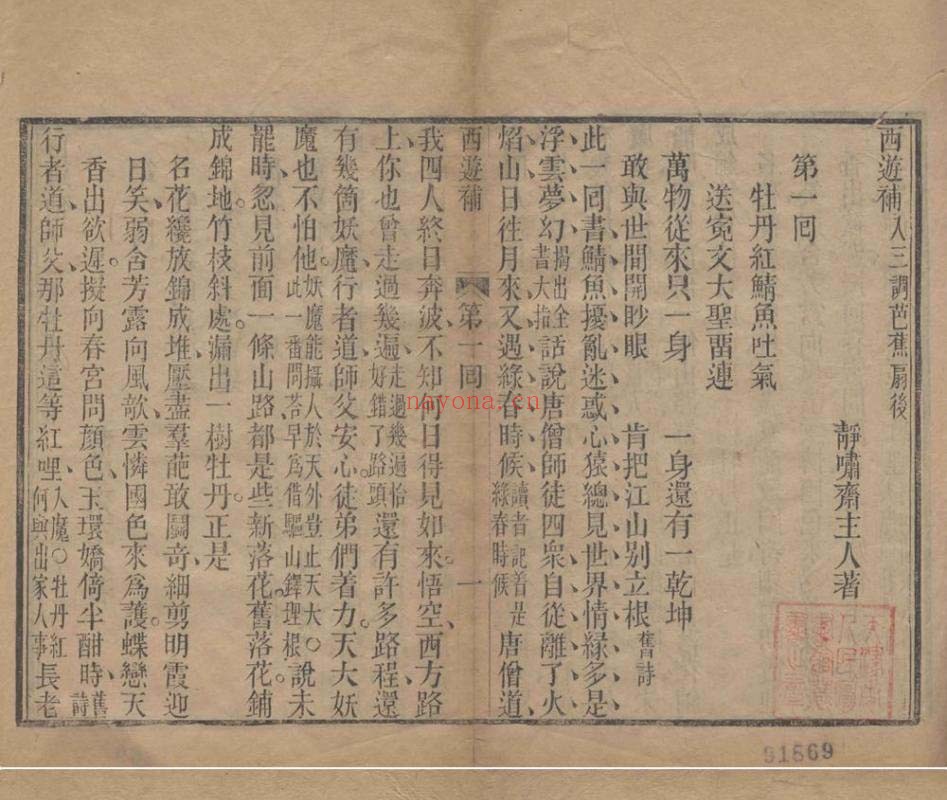 西遊補入三調芭蕉扇後
靜嘯齋主人著
第一囘
牡丹紅鯖魚吐氣
送寃文大聖畱連
萬物從來只一身 一身還有一乾坤
敢與世間開眇眼 肯把江山别立根舊詩
此一囘書鯖魚擾亂迷惑心猿總見世界情緣多是
浮雲夢幻揭出全書大指話說唐僧師徒四衆自從離了火
熖山日徃月來又遇綠春時候讀者記着是綠春時候唐僧道
西遊補 第一囘 一
我四人終日奔波不知何日得見如來悟空西方路
上你也曾走過幾遍走過幾遍恰好錯了路頭還有許多路程還
有幾箇妖魔行者道師父安心徒弟們着力天大妖
魔也不怕他妖魔能攝人於天外豈止天大○此一番問荅早為借驅山鐸理根說未
罷時忽見前面一條山路都是些新落花舊落花鋪
成錦地竹枝斜處漏出一樹牡丹正是
名花纔放錦成堆壓盡羣葩敢鬬奇細剪明霞迎
日笑弱含芳露向風欹雲憐國色來爲護蝶戀天
香出欲遲擬向春宮問顔色玉環嬌倚半酣時舊詩
行者道師父那牡丹這等紅哩入魔○牡丹紅何與出家人事長老
91569
nayona.cn